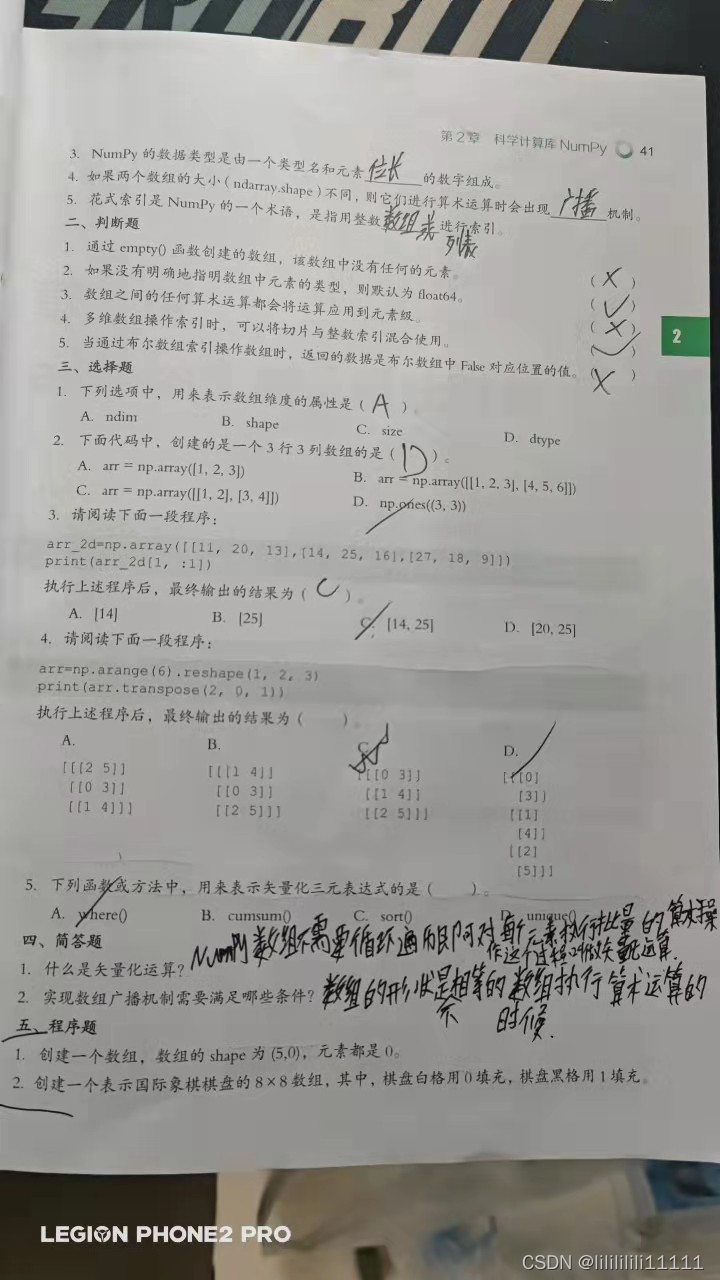 第2章 科学计算库 NumPy 41
3. NumPy 的数据类型是由一个类型名和元素 位长 的数字组成。
4. 如果两个数组的大小（ndarray.shape）不同，则它们进行算术运算时会出现 广播 机制。
5. 花式索引是 NumPy 的一个术语，是指用整数 数组或 列表 进行索引。
二、判断题
1. 通过 empty() 函数创建的数组，该数组中没有任何的元素。 （ X ）
2. 如果没有明确地指明数组中元素的类型，则默认为 float64。 （ ✓ ）
3. 数组之间的任何算术运算都会将运算应用到元素级。 （ X ）
4. 多维数组操作索引时，可以将切片与整数索引混合使用。 （ ✓ ）
5. 当通过布尔数组索引操作数组时，返回的数据是布尔数组中 False 对应位置的值。（ X ）
2
三、选择题
1. 下列选项中，用来表示数组维度的属性是（ A ）。
A. ndim B. shape C. size D. dtype
2. 下面代码中，创建的是一个 3 行 3 列数组的是（ D ）。
A. arr = np.array([1, 2, 3]) B. arr = np.array([[1, 2, 3], [4, 5, 6]])
C. arr = np.array([[1, 2], [3, 4]]) D. np.ones((3, 3))
3. 请阅读下面一段程序：
arr_2d=np.array([[11, 20, 13],[14, 25, 16],[27, 18, 9]])
print(arr_2d[1, :1])
执行上述程序后，最终输出的结果为（ C ）。
A. [14] B. [25] C. [14, 25] D. [20, 25]
4. 请阅读下面一段程序：
arr=np.arange(6).reshape(1, 2, 3)
print(arr.transpose(2, 0, 1))
执行上述程序后，最终输出的结果为（ ）。
A. B. C. D.
[[[2 5]] [[[1 4]] [[[0 3]] [[[0]
[[0 3]] [[0 3]] [[1 4]] [3]]
[[1 4]]] [[2 5]]] [[2 5]]] [[1]
[4]]
[[2]
[5]]]
5. 下列函数或方法中，用来表示矢量化三元表达式的是（ ）。
A. where() B. cumsum() C. sort() D. unique()
四、简答题
1. 什么是矢量化运算？ NumPy 数组不需要循环遍历即可对每个元素执行批量的算术操
作这个过程叫做矢量化运算.
2. 实现数组广播机制需要满足哪些条件？ 数组的形状是不相等的数组执行算术运算的
时候.
五、程序题
1. 创建一个数组，数组的 shape 为 (5,0)，元素都是 0。
2. 创建一个表示国际象棋棋盘的 8×8 数组，其中，棋盘白格用 0 填充，棋盘黑格用 1 填充。
LEGION PHONE2 PRO
CSDN @lilililili11111